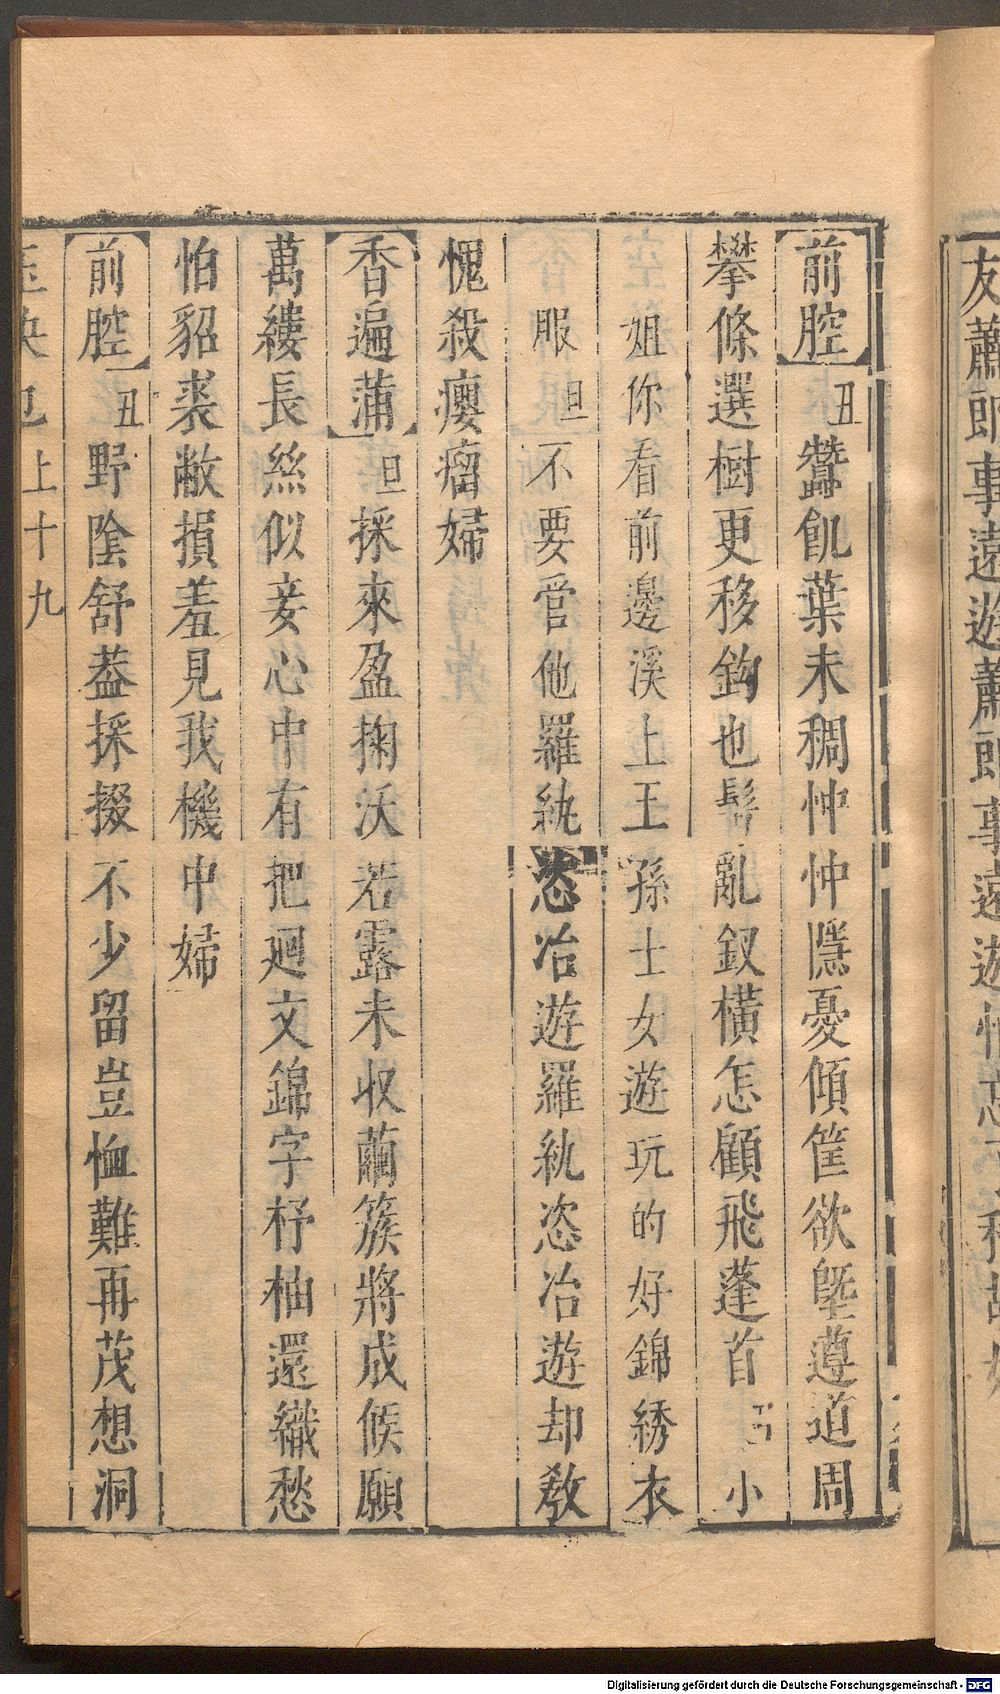 友蕭郎事遠遊蕭郎事遠遊
前腔丑蠶飢葉未稠忡忡隱憂傾筐欲塈遵道周
攀條選樹更移鈎也髩亂釵橫怎顧飛蓬首丑小
姐你看前邊溪上王孫士女遊玩的好錦綉衣
服旦不要管他羅紈恣冶遊羅紈恣冶遊却教
愧殺癭瘤婦
香遍蒲旦採來盈掬沃若露未収繭簇將成候願
萬縷長絲似妾心中有把迴文錦字杼柚還織愁
怕貂裘敝損羞見我機中婦
前腔丑野陰舒葢採掇不少留豈恤難再茂想洞
上十九
Digitalisierung gefördert durch die Deutsche Forschungsgemeinschaft - DFG